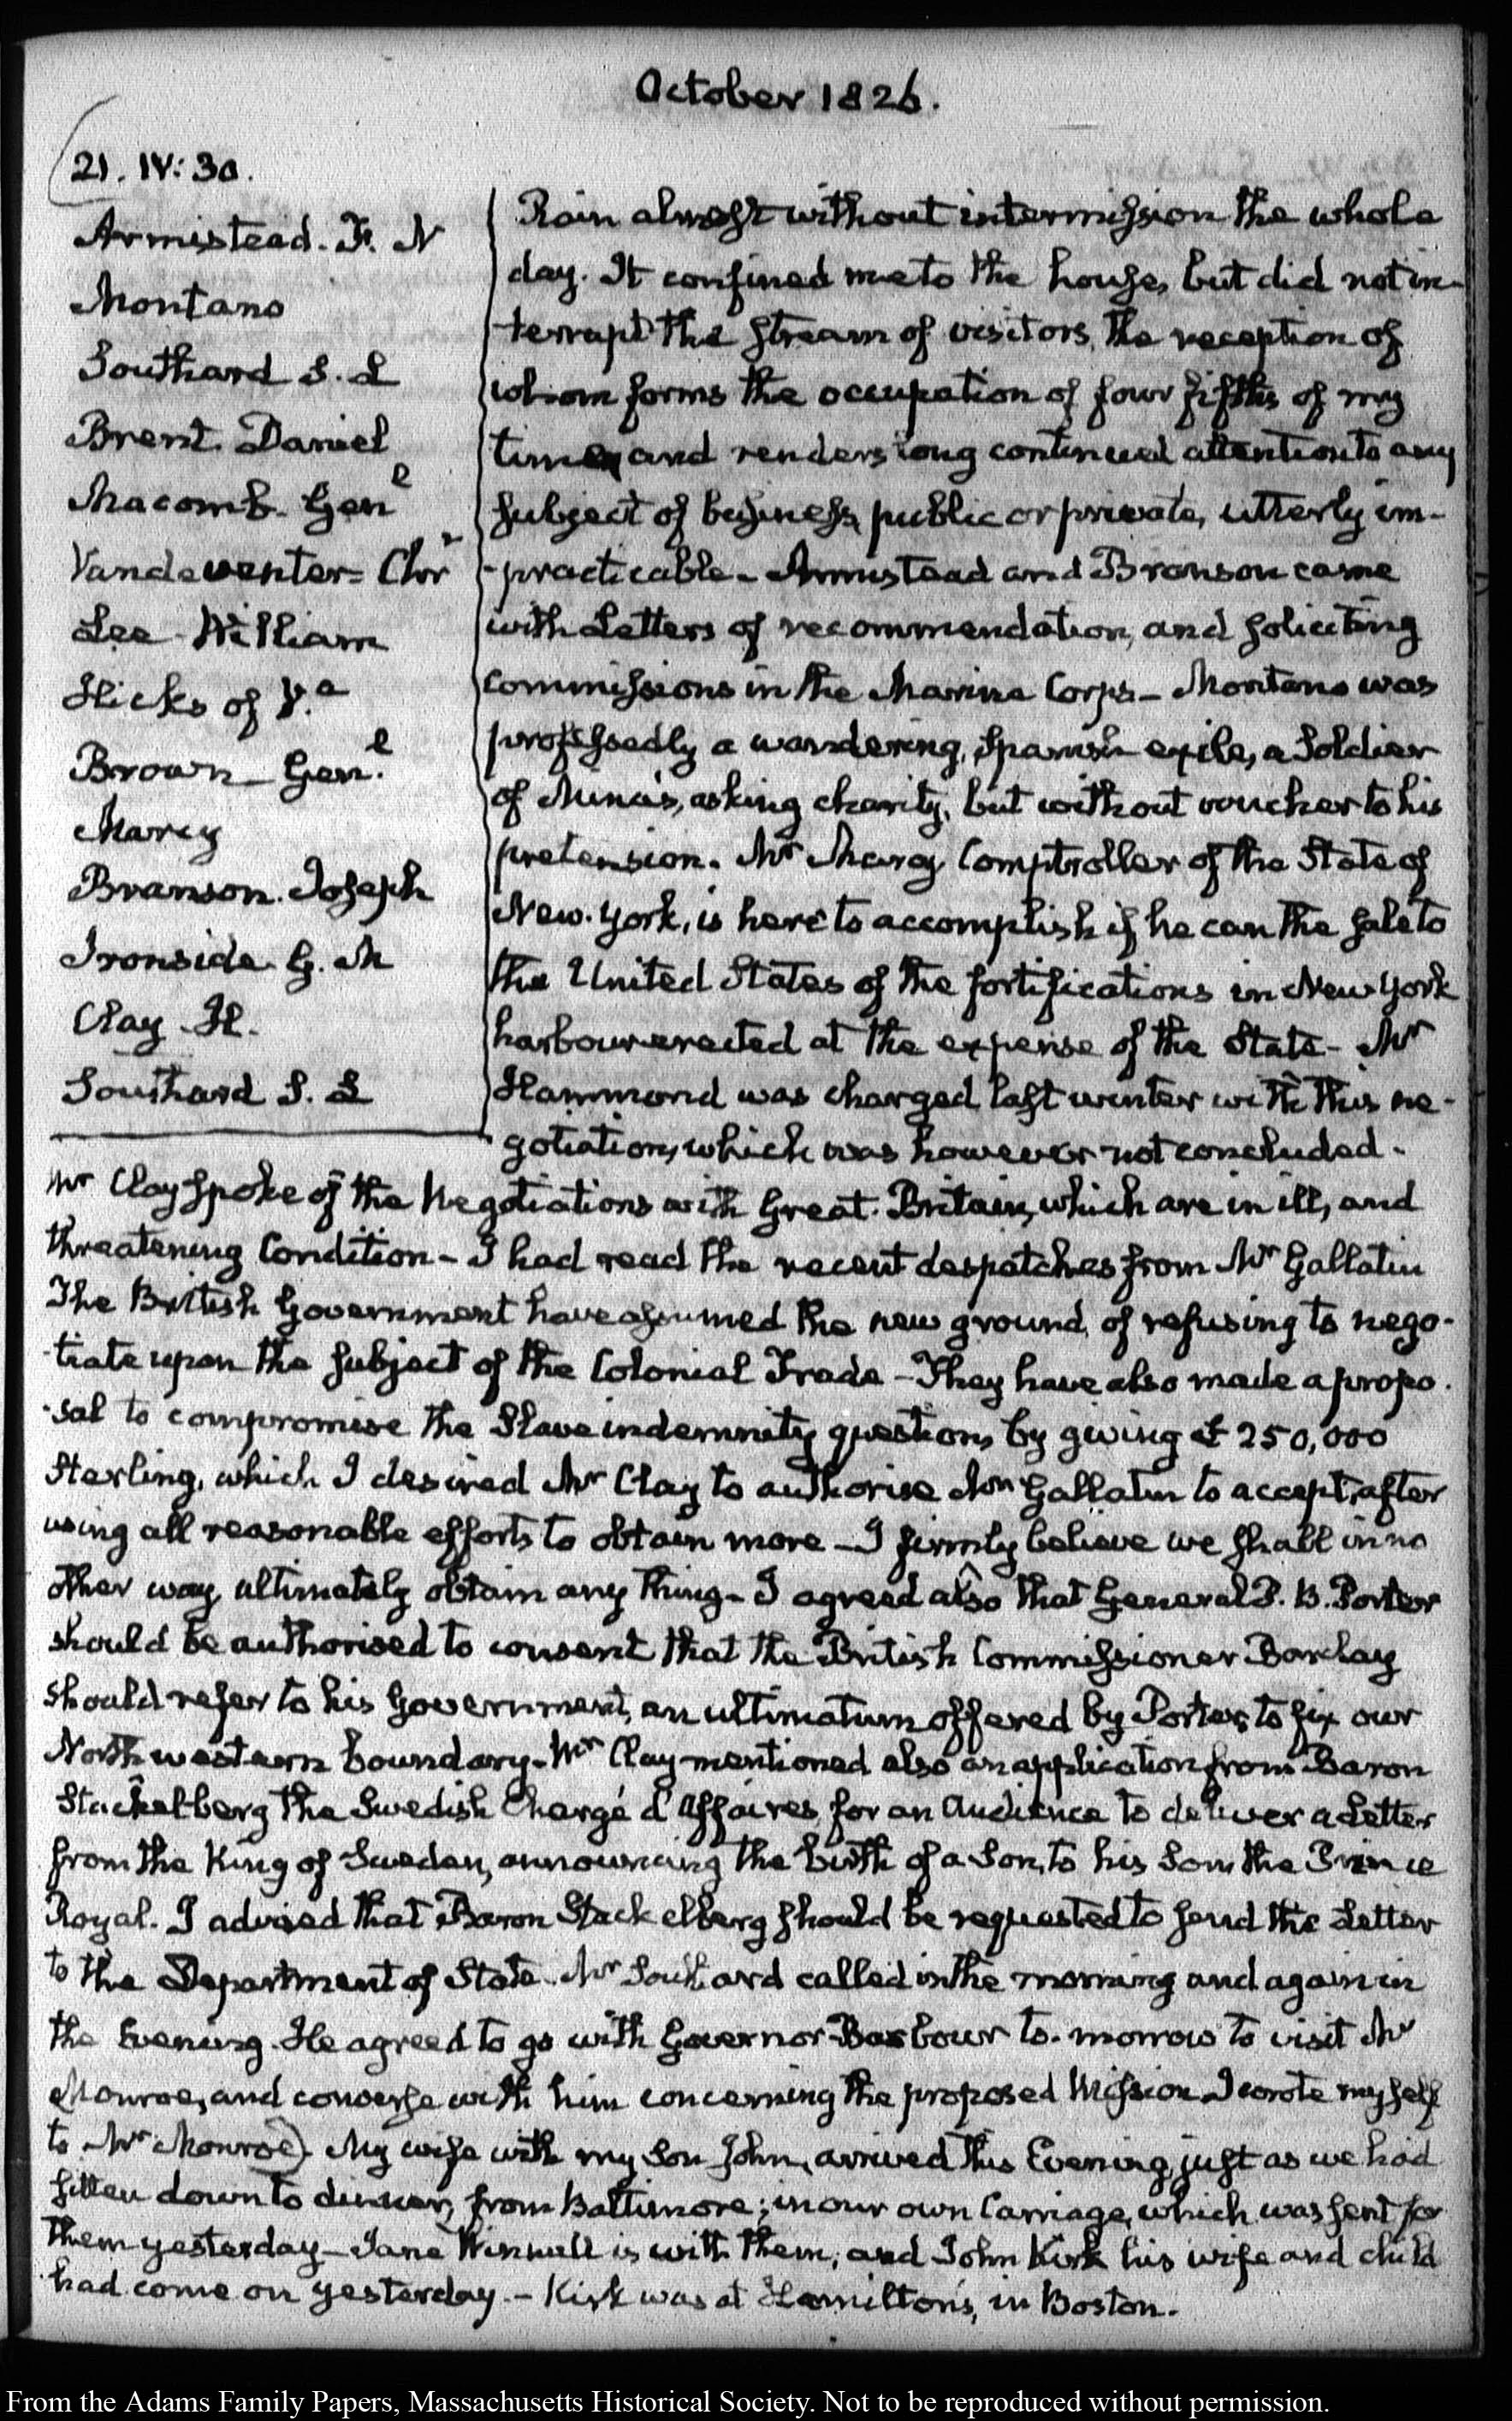 October 1826.
21. IV:30.
Armistead. F. N
Montano
Southard S. L
Brent. Daniel
Macomb. Genl
Vandeventer. Chr
Lee William
Hicks of V.a
Brown Gen.l
Marcy
Branson. Joseph
Ironside. G. M
Clay H.
Southard S. L
Rain almost without intermission the whole
day. It confined me to the house, but did not in-
terrupt the stream of visitors, the reception of
whom forms the occupation of four fifths of my
time, and renders long continued attention to any
subject of business, public or private, utterly im-
-practicable. Armistead and Branson came
with Letters of recommendation, and soliciting
commissions in the Marine Corps — Montano was
professedly a wandering, Spanish exile, a Soldier
of Mina's, asking charity, but without voucher to his
pretension. Mr Marcy Comptroller of the State of
New-York, is here to accomplish if he can the sale to
the United States of the fortifications in New York
harbour erected at the expense of the State — Mr
Hammond was charged last winter with this ne-
gotiation, which was however not concluded.
Mr Clay spoke of the Negotiations with Great-Britain, which are in ill, and
threatening Condition — I had read the recent despatches from Mr Gallatin
The British Government have assumed the new ground, of refusing to nego-
tiate upon the subject of the Colonial Trade — They have also made a propo-
-sal to compromise the Slave indemnity question, by giving £ 250,000
Sterling, which I desired Mr Clay to authorise Mr Gallatin to accept, after
using all reasonable efforts to obtain more — I firmly believe we shall in no
other way, ultimately obtain any thing — I agreed also that General P. B. Porter
should be authorised to consent that the British Commissioner Barclay
should refer to his Government, an ultimatum offered by Porter, to fix our
Northwestern boundary. Mr Clay mentioned also an application from Baron
Stackelberg the Swedish Chargé d'Affaires, for an Audience to deliver a Letter
from the King of Sweden, announcing the birth of a Son, to his Son the Prince
Royal. I advised that Baron Stackelberg should be requested to send the Letter
to the Department of State. Mr Southard called in the morning and again in
the Evening. He agreed to go with Governor Barbour to-morrow to visit Mr
Monroe, and converse with him concerning the proposed Mission. I wrote myself
to Mr Monroe) My wife with my Son John, arrived this Evening, just as we had
sitten down to dinner, from Baltimore; in our own Carriage, which was sent for
them yesterday — Jane Winnull is with them; and John Kirk his wife and child
had come on yesterday. — Kirk was at Hamilton's, in Boston.
From the Adams Family Papers, Massachusetts Historical Society. Not to be reproduced without permission.